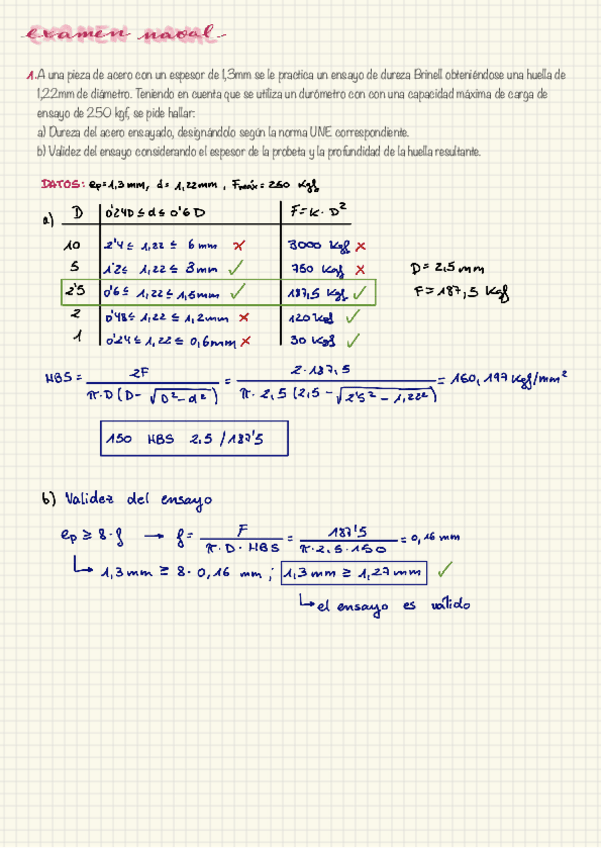 examen naval
1. A una pieza de acero con un espesor de 1,3mm se le practica un ensayo de dureza Brinell obteniéndose una huella de
1,22mm de diámetro. Teniendo en cuenta que se utiliza un durómetro con con una capacidad máxima de carga de
ensayo de 250 kgf, se pide hallar:
a) Dureza del acero ensayado, designándolo según la norma UNE correspondiente.
b) Validez del ensayo considerando el espesor de la probeta y la profundidad de la huella resultante.
DATOS: ep=1,3mm, d= 1,22mm, Fmáx= 250 Kgf
a) D 0'24D ≤ d ≤ 0'6 D F= K· D²
10 2'4 ≤ 1,22 ≤ 6 mm ✗ 3000 Kgf ✗
5 1'2 ≤ 1,22 ≤ 3mm ✓ 750 Kgf ✗ D= 2,5 mm
2'5 0'6 ≤ 1,22 ≤ 1,5mm ✓ 187,5 Kgf ✓ F= 187,5 Kgf
2 0'48 ≤ 1,22 ≤ 1,2mm ✗ 120 Kgf ✓
1 0'24 ≤ 1,22 ≤ 0,6mm ✗ 30 Kgf ✓
HBS = 2F / π·D (D- √D²-d²) = 2·187,5 / π· 2,5 (2,5 - √2'5² - 1,22²) = 150,197 Kgf/mm²
150 HBS 2,5 / 187'5
b) Validez del ensayo
ep ≥ 8·f → f= F / π·D· HBS = 187'5 / π·2,5·150 = 0,16 mm
↳ 1,3 mm ≥ 8· 0,16 mm ; 1,3 mm ≥ 1,27 mm ✓
↳ el ensayo es válido